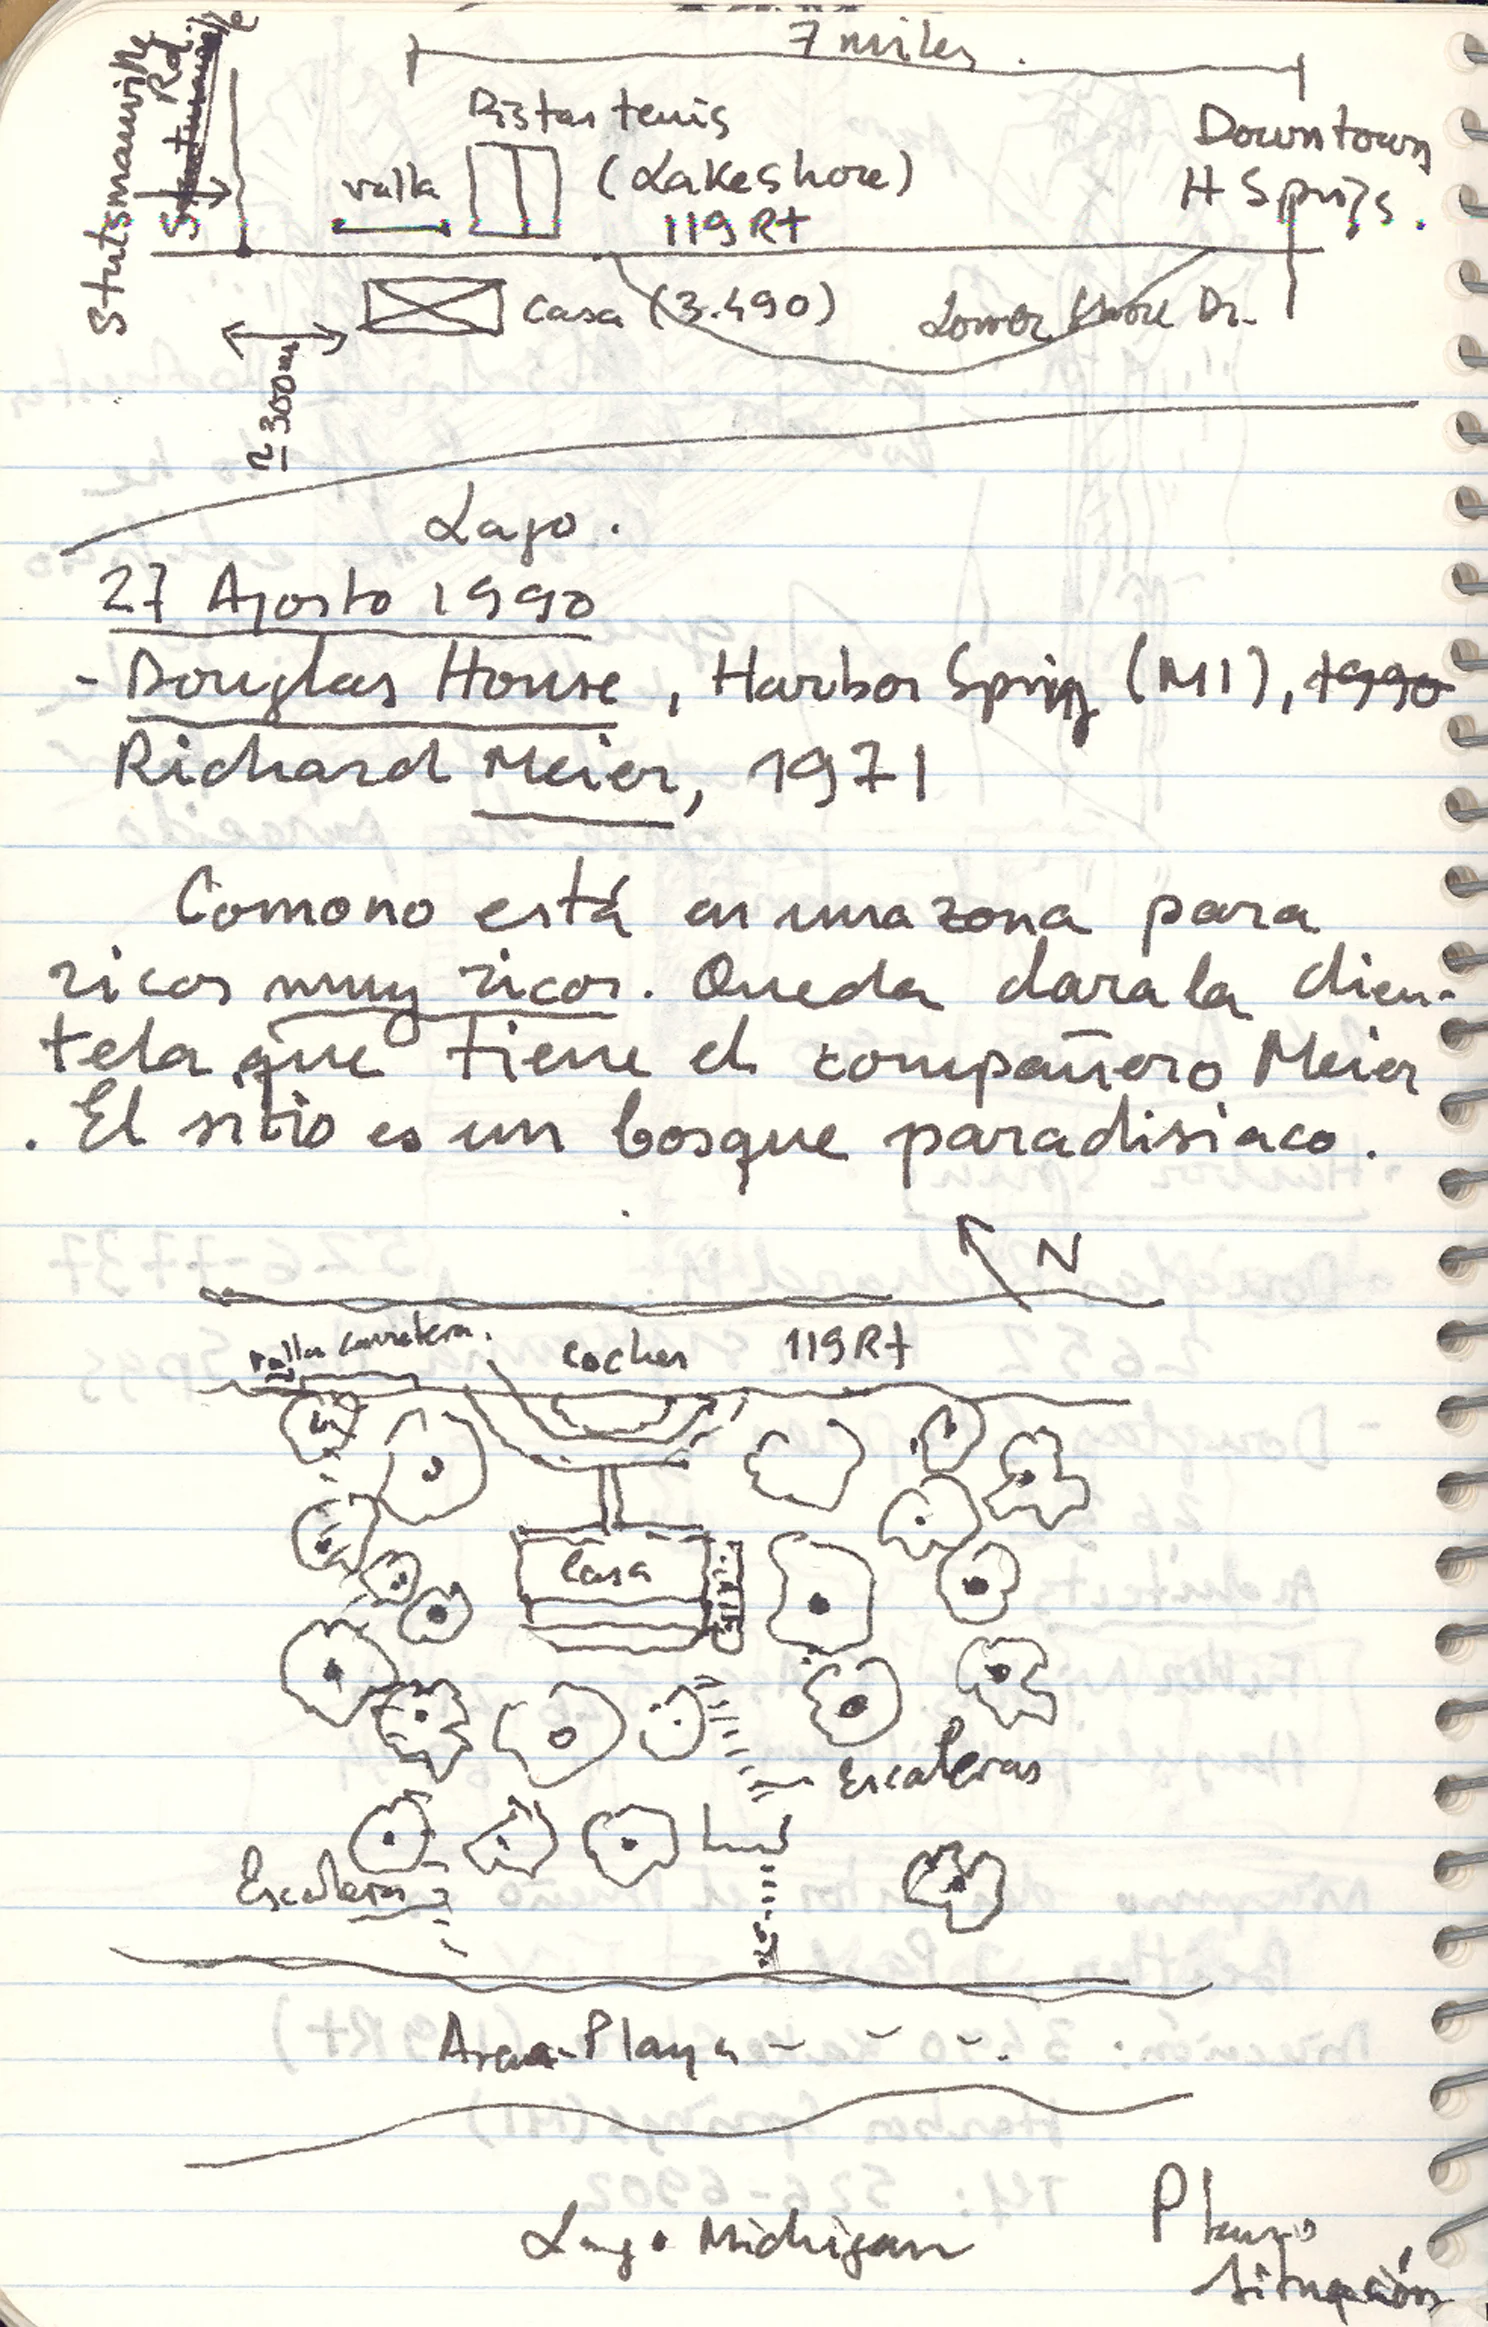 7 miles.
Stutsmanville
Rd.
Pistas tenis
(Lakeshore)
119 Rt
valla
Downtown
H Springs.
Casa (3.490)
Lower Shore Dr.
≃300m
Lago.
27 Agosto 1990
- Douglas House, Harbor Spring (MI), 1990
Richard Meier, 1971
Como no está en una zona para
ricos muy ricos. Queda clara la clien-
tela que tiene el compañero Meier
. El sitio es un bosque paradisiaco.
N
valla carretera.
coches
119 Rt
Casa
Escaleras
Escaleras
Area-Playa
Lago Michigan
Plano
situación